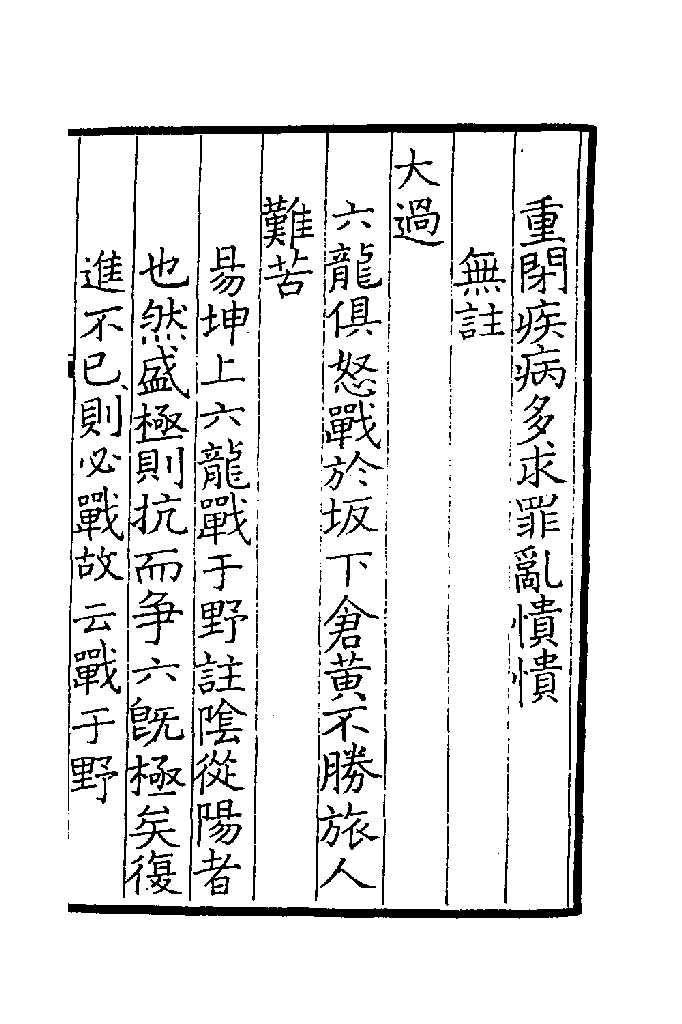 重閉疾病多求罪亂憒憒
無註
大過
六龍俱怒戰於坂下倉黃不勝旅人
難苦
易坤上六龍戰于野註陰從陽者
也然盛極則抗而爭六旣極矣復
進不已則必戰故云戰于野